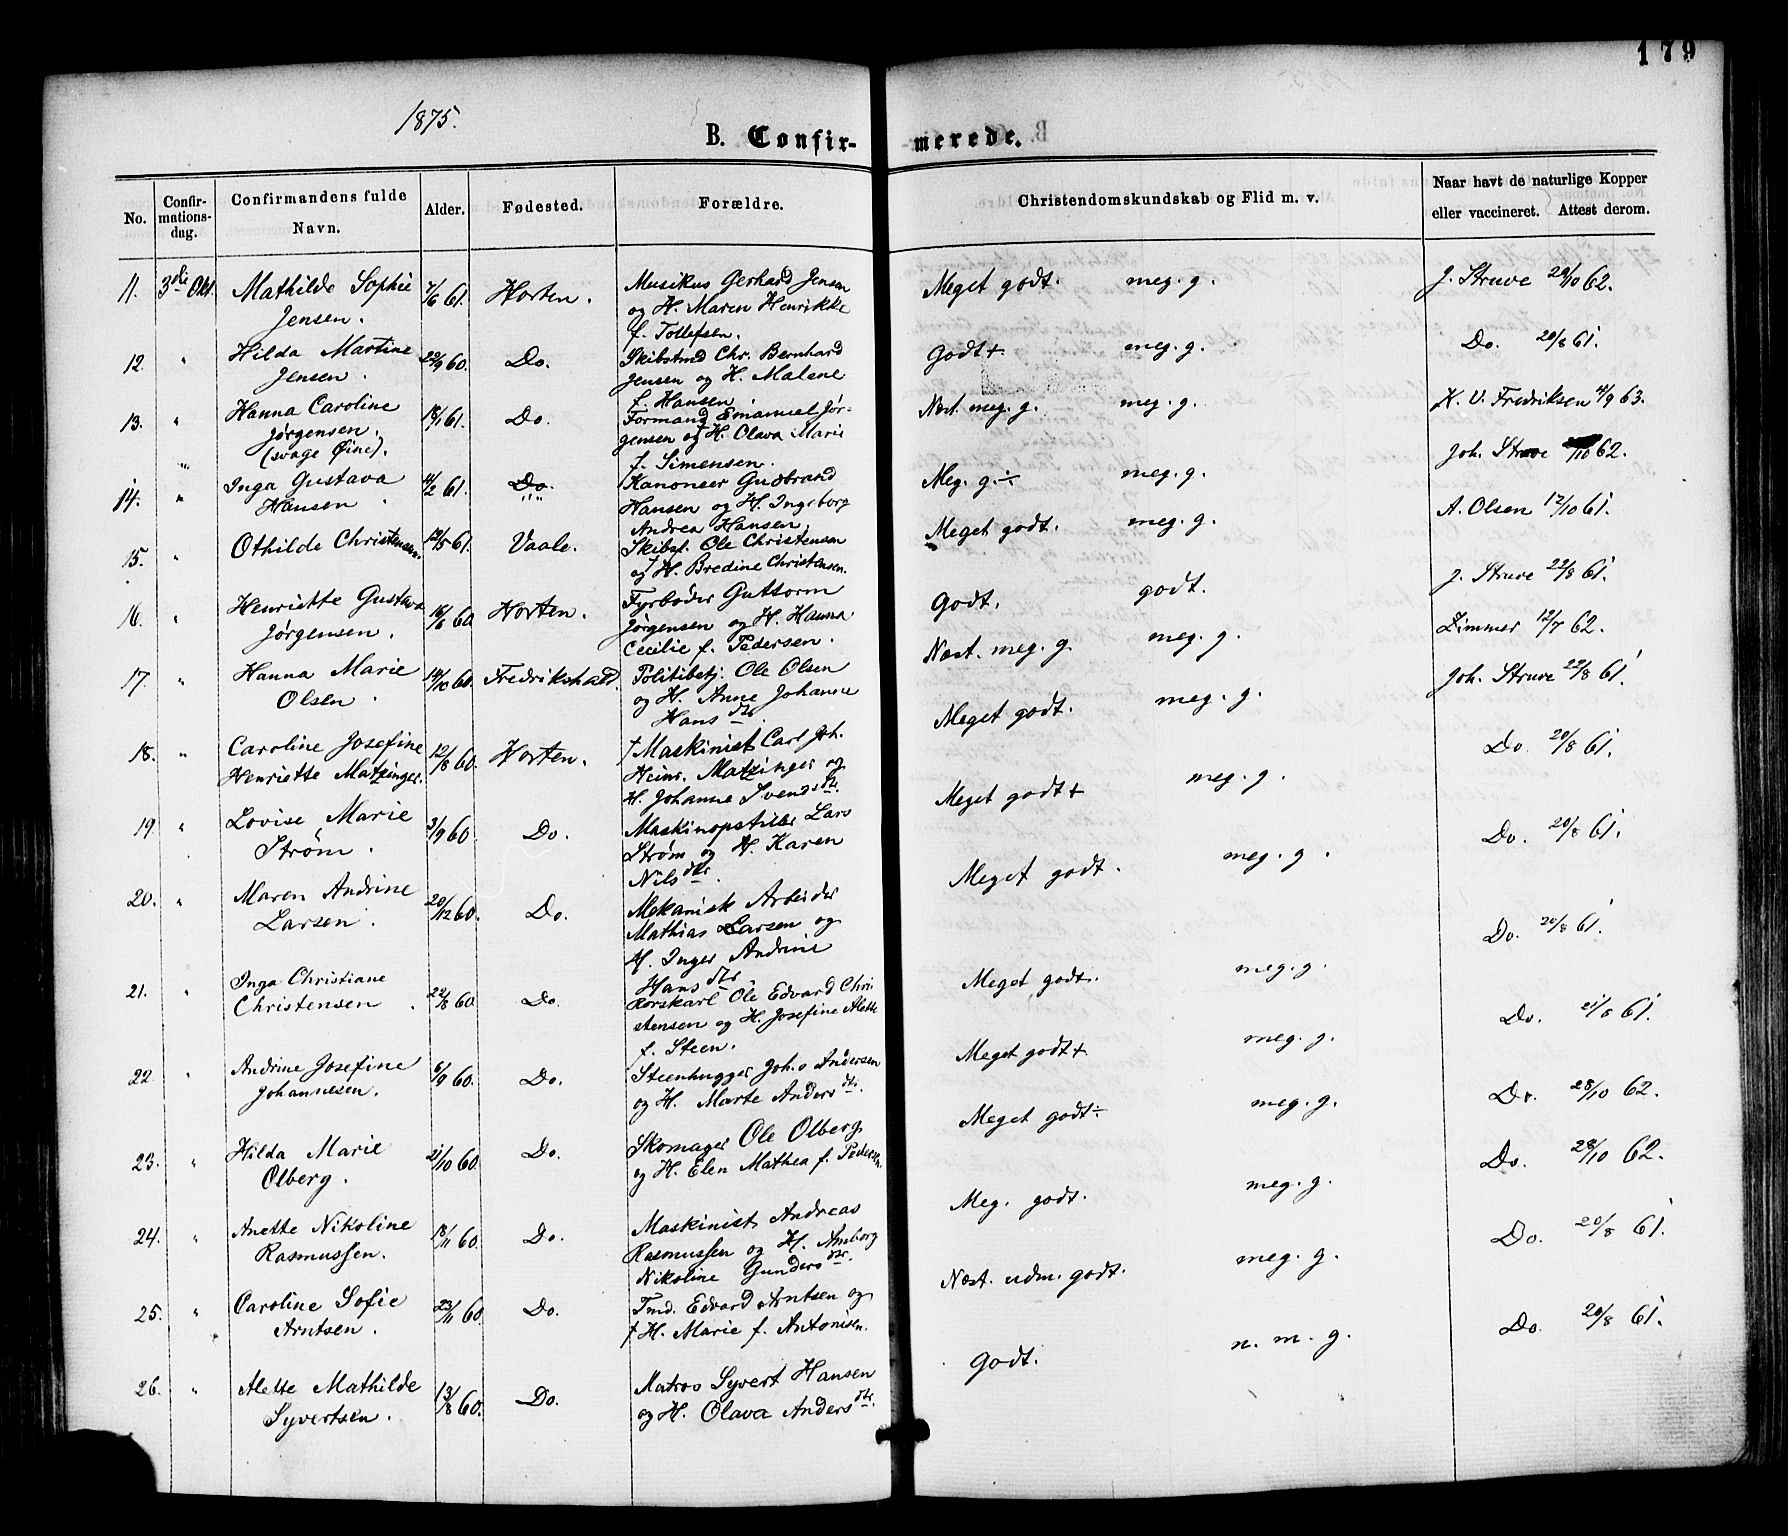 179
1875.
B. Confir-
merede.
No.
Confir-
mations-
dag.
Confirmandens fulde
Navn.
Alder.
Fødested.
Forældre.
Christendomskundskab og Flid m. v.
Naar havt de naturlige Kopper
eller vaccineret. Attest derom.
11. 3die Okt. Mathilde Sophie 7/6 61. Horten. Musikus Gerhard Jensen
Jensen. og H. Maren Henrikke
f. Tollefsen.
Meget godt. meg. g. J. Struve 29/10 62.
12. " Hilda Martine 22/9 60. Do. Skibstmd Chr. Bernhard
Jensen. Jensen og H. Malene
f. Hansen
Godt+ meg. g. Do. 20/8 61.
13. " Hanna Caroline 18/1 61. Do. Formand Emanuel Jør-
Jørgensen. gensen og H. Olava Marie
(svage Øine). f. Simensen.
Næst. meg. g. meg. g. K. V. Fredriksen 4/9 63.
14. " Inga Gustava 11/2 61. Do. Kanoneer Gudbrand
Hansen. Hansen og H. Ingeborg
Andrea Hansen.
Meg. g÷ meg. g. Joh. Struve /10 62.
15. " Othilde Christensen. 12/5 61. Vaale. Skibst. Ole Christensen
og H. Bredine Christensen.
Meget godt. meg. g. A. Olsen 12/10 61.
16. " Henriette Gustava 16/6 60 Horten. Fyrbøder Guttorm
Jørgensen. Jørgensen og H. Hanna
Cecilie f. Pedersen.
Godt. godt. J. Struve 22/8 61.
17. " Hanna Marie 14/10 60. Fredrikshald. Politibetj. Ole Olsen
Olsen. og H. Anne Johanne
Hansdtr.
Næst. meg. g. meg. g. Zimmer 12/7 62.
18. " Caroline Josefine 12/8 60. Horten. † Maskinist Carl Joh.
Henriette Matzinger. Heinr. Matzinger og
H. Johanne Svendsdtr.
Meget godt. meg. g. Joh. Struve 22/8 61.
19. " Lovise Marie 3/9 60. Do. Maskinopstiller Lars
Strøm. Strøm og H. Karen
Nilsdtr.
Meget godt+ meg. g. Do. 20/8 61.
20. " Maren Andrine 20/12 60. Do. Mekanisk Arbeider
Larsen. Mathias Larsen og
H. Inger Andrine
Hansdtr
Meget godt. meg. g. Do. 20/8 61.
21. " Inga Christiane 22/8 60. Do. Rorskarl Ole Edvard Chri
Christensen. stensen og H. Josefine Alette
f. Steen.
Meget godt. meg. g. Do. 20/8 61.
22. " Andrine Josefine 6/9 60. Do. Steenhugger Johs Andersen
Johannesen. og H. Marte Andersdtr.
Meget godt+ meg. g. Do. 21/8 61.
23. " Hilda Marie 21/10 60. Do. Skomager Ole Olberg
Olberg. og H. Elen Mathea f. Pedersen.
Meget godt÷ meg. g. Do. 28/10 62.
24. " Anette Nikoline 18/11 60. Do. Maskinist Andreas
Rasmussen. Rasmussen og H. Amborg
Nikoline Gundersdtr.
Meg. godt. meg. g. Do. 28/10 62.
25. " Caroline Sofie 23/11 60. Do. Tmd. Edvard Arntsen og
Arntsen. † H. Marie f. Antonisen.
Næst. udm. godt. meg. g. Do. 20/8 61.
26. " Alette Mathilde 13/8 60. Do. Matros Syvert Hansen
Syvertsen. og H. Olava Andersdtr.
Godt. n. m. g. Do. 20/8 61.